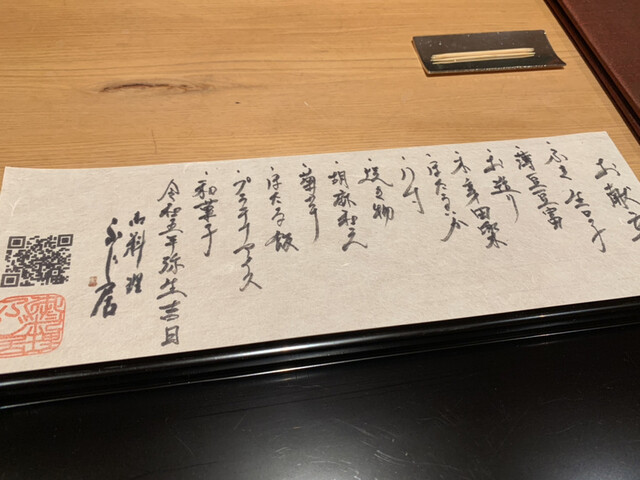 お献立
ふき 生白子
薄豆豆富
お造り
木の芽田楽
ほたるいか
八寸
焼き物
胡麻和え
苺
ほたる飯
プラチナアイス
和菓子
令和五年弥生吉日
御料理
ふじ居